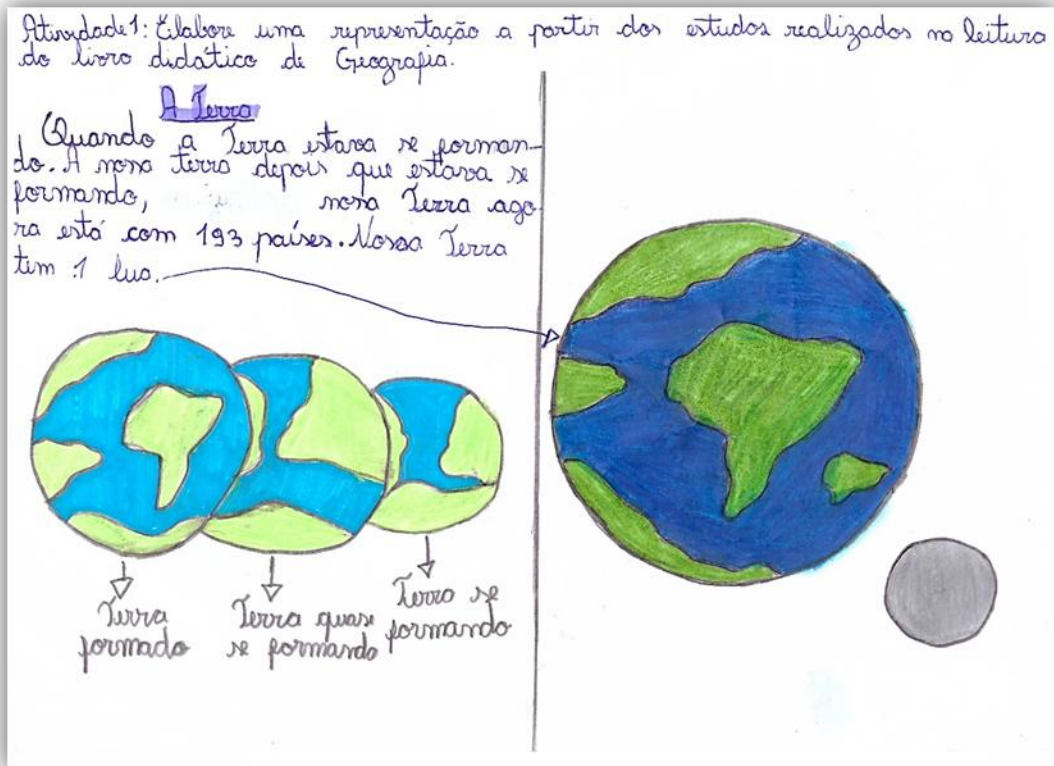 Atividade 1: Elabore uma representação a partir dos estudos realizados na leitura
do livro didático de Geografia.
A Terra
Quando a Terra estava se forman-
do. A nossa terra depois que estava se
formando, nossa Terra ago
ra está com 193 países. Nossa Terra
tem 1 lua.
Terra
formada
Terra quase
se formando
Terra se
formando